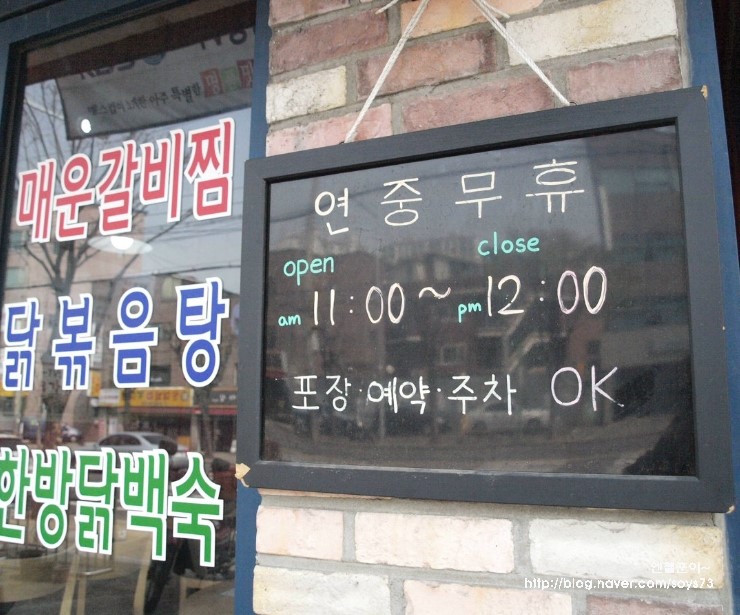 매운갈비찜
닭볶음탕
한방닭백숙
연중무휴
open close
am 11:00 ~ pm 12:00
포장·예약·주차 OK
http://blog.naver.com/soys73